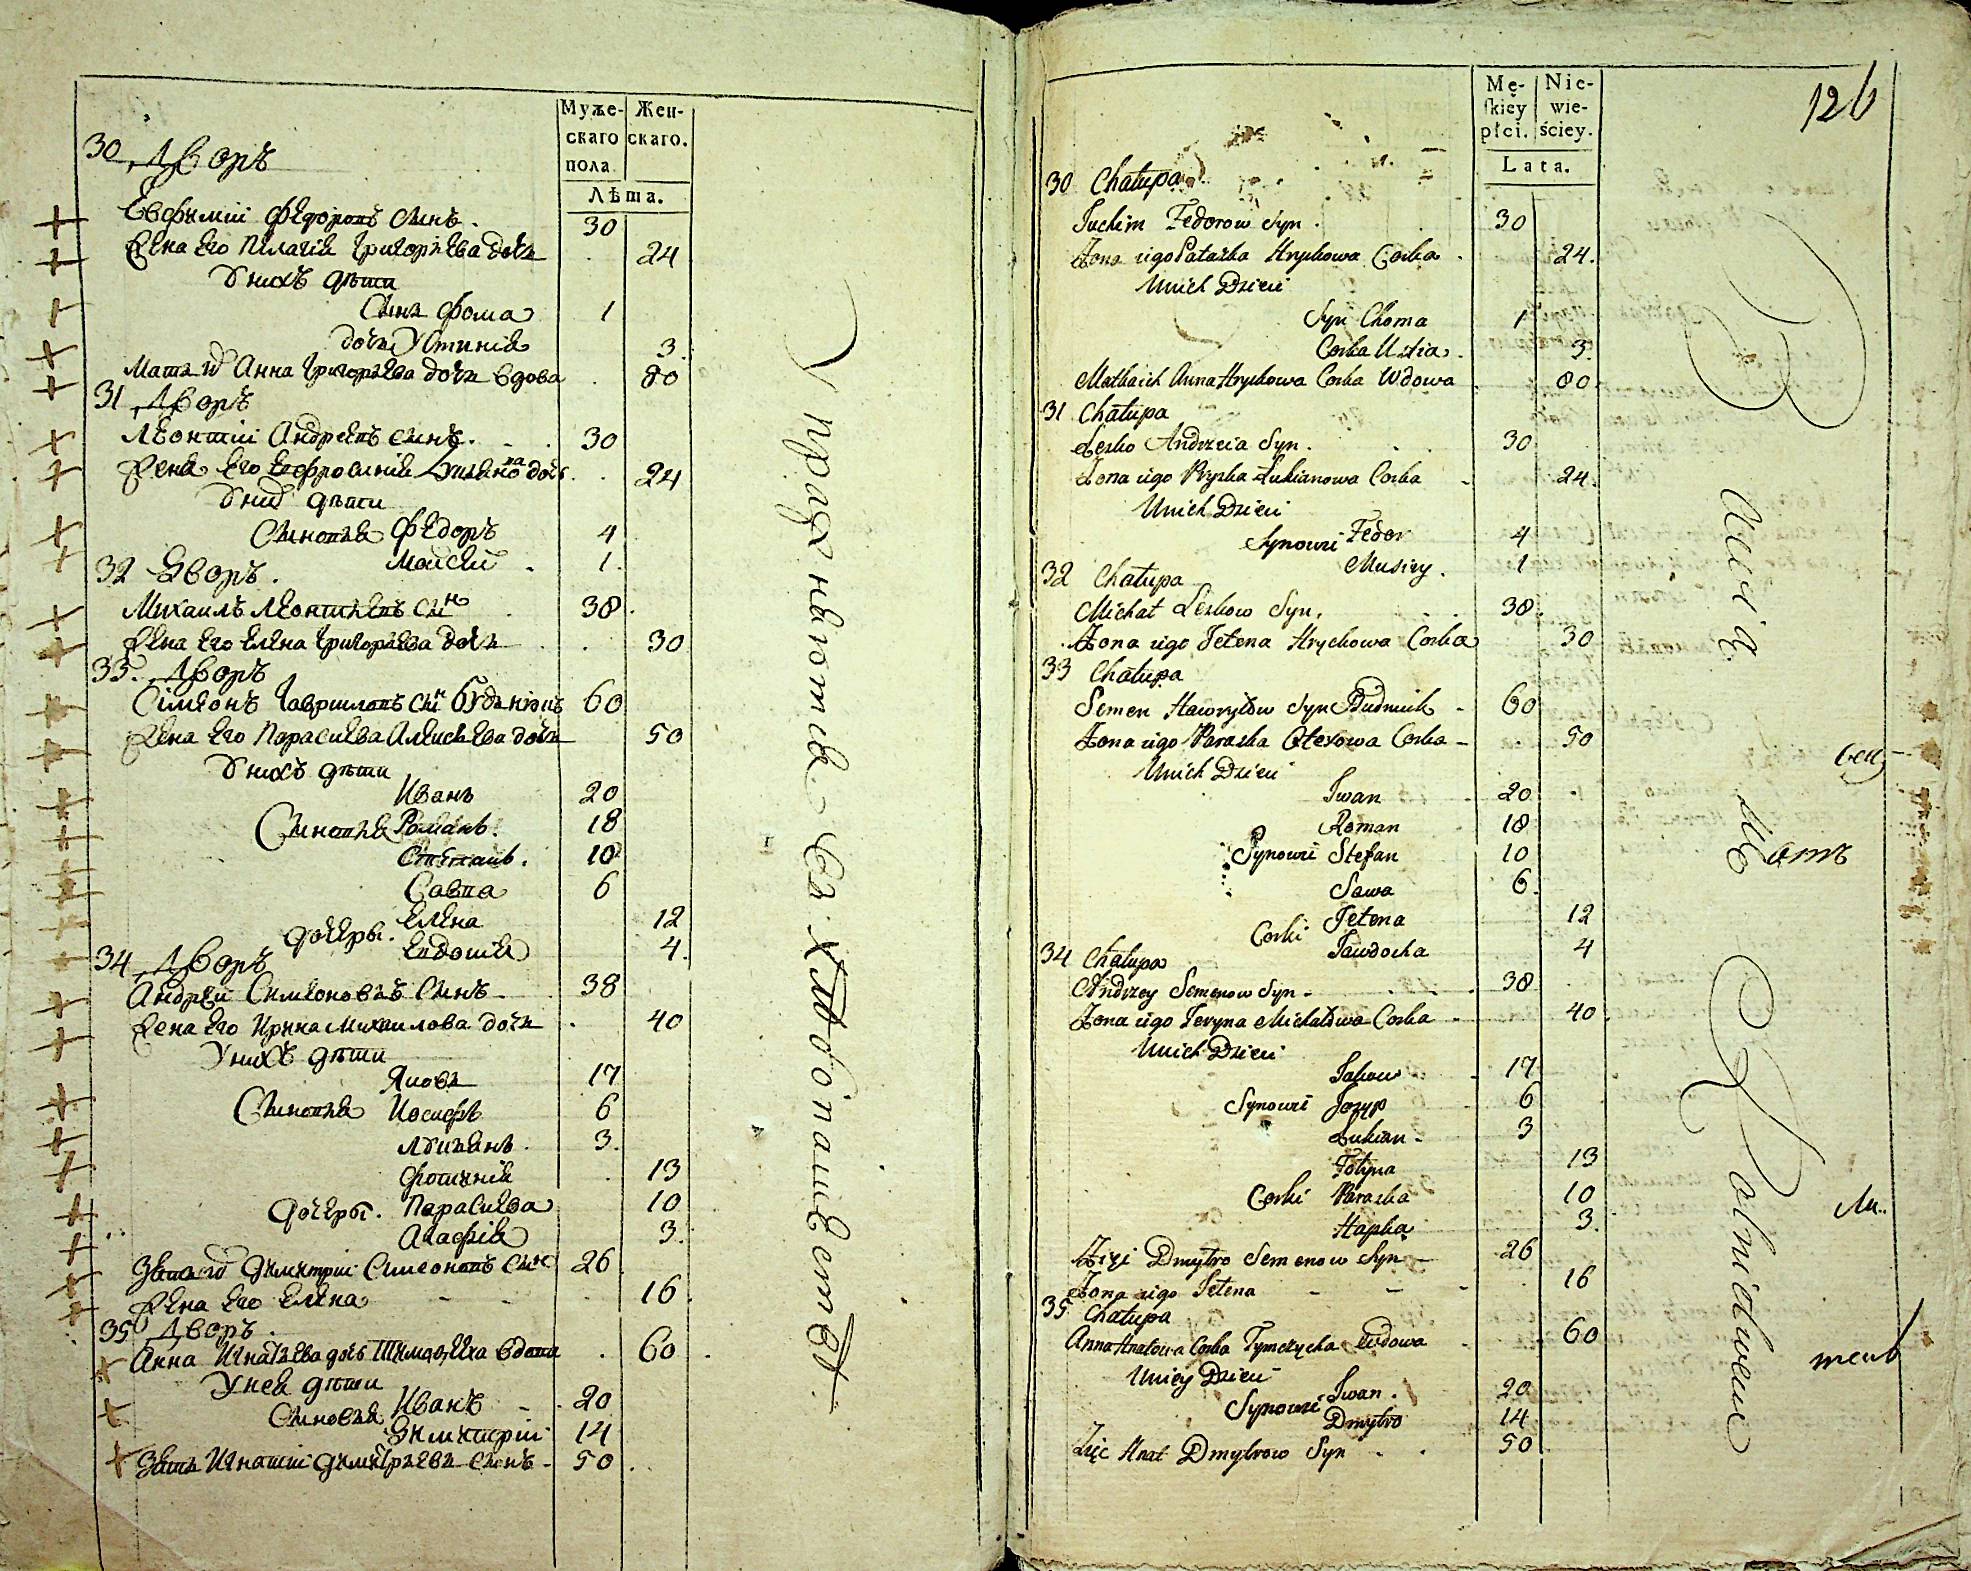 Муже- Жен-
скаго скаго.
пола
Лѣта.
30 Дворъ
Евфимій Федоровъ Синъ. 30
Жена Его Пелагія Григорѣева дочь 24
У нихъ дѣти
Синъ Фома 1
дочь Устинія 3.
Мать их Анна Григорѣева дочь вдова 80
31 Дворъ
Леонтій Андреевъ синъ. 30
Жена Его Евфросинія Лукиянова дочь 24
У них дѣти
Синовья Федоръ 4
Моисей 1.
32 Дворъ.
Михаилъ Леонтіевъ Син 38.
Жена Его Елена Григорѣева дочь 30
33. Дворъ
Симеонъ Гавриловъ син Будникъ 60
Жена Его Параскева Алексѣева дочь 50
У нихъ дѣти
Иванъ 20
Синовья Романъ. 18
Стефанъ. 10
Савва 6
Елена 12
дочеры. Евдокія 4.
34 Дворъ
Андрей Симеоновъ Синъ 38
Жена Его Ирина Михаилова дочь 40
У нихъ дѣти
Яковъ 17
Синовья Иосифъ 6
Лукиянъ. 3.
Фотинія 13
дочеры. Параскева 10
Агафія 3.
Зять их Димитрій Симеоновъ Син 26
Жена Его Елена 16.
35 Дворъ.
Анна Игнатѣева дочь вдова 60
У ней дѣти
Синовья Иванъ 20
Димитрій 14
Зять Игнатій Димитрѣевъ синъ 50
Упражняются въ Хлѣбопашествѣ.
126
Mę- Nie-
skiey wie-
płci. ściey.
Lata.
30 Chałupa
Juchim Fedorow Syn. 30
Zona iego Patażka Hryhowa Corka 24.
U nich Dzieci
Syn Choma 1
Corka Ustia. 3.
Matka ich Anna Hryhowa Corka Wdowa 80
31 Chałupa
Lesko Andrzeia Syn. 30
Zona iego Pryska Łukianowa Corka 24.
U nich Dzieci
Synowie Fedor 4
Musiey. 1
32 Chałupa
Michał Leskow Syn, 38.
Zona iego Jełena Hryckowa Corka 30
33 Chałupa
Semen Hawryłow Syn Budnik 60
Zona iego Paraska Ołexowa Corka 50
U nich Dzieci
Iwan 20
Roman 18
Synowie Stefan 10
Sawa 6.
Jełena 12
Corki Jawdocha 4
34 Chałupa
Andrzey Semenow Syn 38
Zona iego Jeryna Michałowa Corka 40
U nich Dzieci
Jakow 17
Synowie Jozyp 6
Łukian 3
Fotyna 13
Corki Paraska 10
Hapka 3.
Zięć Dmytro Semenow Syn 26
Zona iego Jełena 16
35 Chałupa
Anna Hnatowa Corka Tymczycha Wdowa 60
U niey Dzieci
Synowie Iwan. 20
Dmytro 14
Zięć Hnat Dmytrow Syn 50
Bawią się Rolnictwem